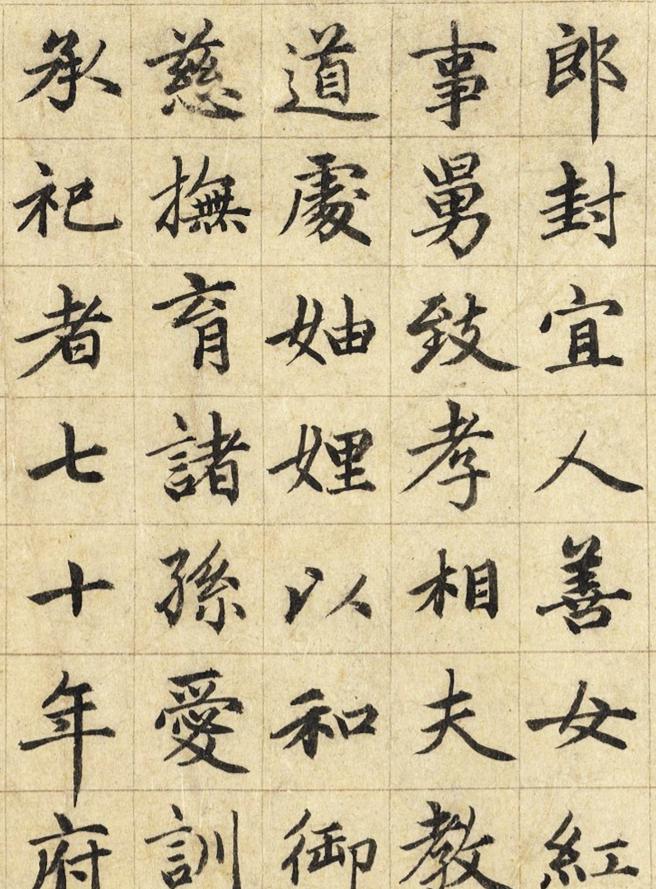 郎封宜人善女紅
事舅致孝相夫教
道處妯娌以和御
慈撫育諸孫愛訓
承祀者七十年府